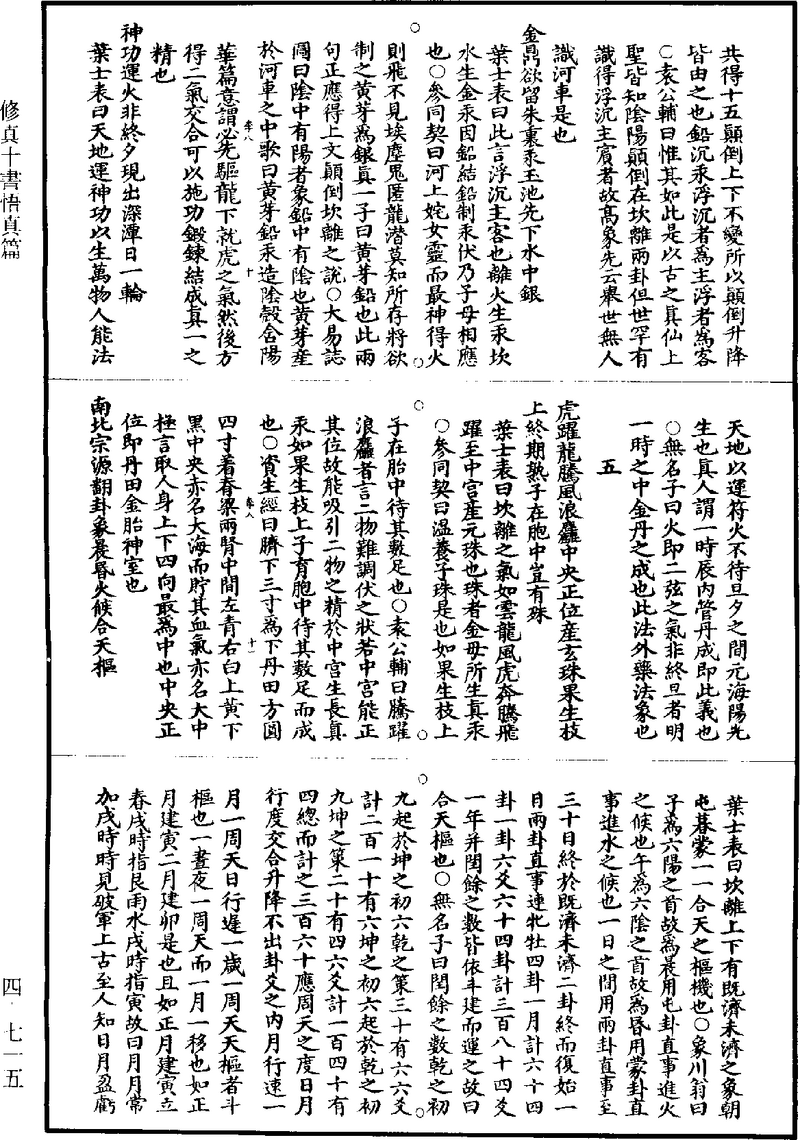 修真十書悟真篇
四·七一五
共得十五顛倒上下不變所以顛倒升降
皆由之也鉛沉汞浮沉者為主浮者為客
○袁公輔曰惟其如此是以古之真仙上
聖皆知陰陽顛倒在坎離兩卦但世罕有
識得浮沉主賓者故高象先云舉世無人
識河車是也
金鼎欲留朱裏汞玉池先下水中銀
葉士表曰此言浮沉主客也離火生汞坎
水生金汞因鉛結鉛制汞伏乃子母相應
也○參同契曰河上姹女靈而最神得火
則飛不見埃塵鬼匿龍潛莫知所存將欲
制之黃芽為銀真一子曰黃芽鉛也此兩
句正應得上文顛倒坎離之說○大易誌
圖曰陰中有陽者象鉛中有陰也黃芽產
於河車之中歌曰黃芽鉛汞造陰殼含陽
卷八 十
華篇意謂必先驅龍下就虎之氣然後方
得二氣交合可以施功鍛鍊結成真一之
精也
神功運火非終夕現出深潭日一輪
葉士表曰天地運神功以生萬物人能法
天地以運符火不待旦夕之間元海陽先
生也真人謂一時辰內管丹成即此義也
○無名子曰火即二弦之氣非終旦者明
一時之中金丹之成也此法外藥法象也
五
虎躍龍騰風浪麤中央正位產玄珠果生枝
上終期熟子在胞中豈有殊
葉士表曰坎離之氣如雲龍風虎奔騰飛
躍至中宮產元珠也珠者金母所生真汞
○參同契曰溫養子珠是也如果生枝上
子在胎中待其數足也○袁公輔曰騰躍
浪麤者言二物難調伏之狀若中宮能正
其位故能吸引二物之精於中宮生長真
汞如果生枝上子育胞中待其數足而成
也○資生經曰臍下三寸為下丹田方圓
卷八 十一
四寸着脊梁兩腎中間左青右白上黃下
黑中央亦名大海而貯其血氣亦名大中
極言取人身上下四向最為中也中央正
位即丹田金胎神室也
南北宗源翻卦象晨昏火候合天樞
葉士表曰坎離上下有既濟未濟之象朝
屯暮蒙一一合天之樞機也○象川翁曰
子為六陽之首故為晨用屯卦直事進火
之候也午為六陰之首故為昏用蒙卦直
事進水之候也一日之間用兩卦直事至
三十日終於既濟未濟二卦終而復始一
日兩卦直事連牝牡四卦一月計六十四
卦一卦六爻六十四卦計三百八十四爻
一年并閏餘之數皆依斗建而運之故曰
合天樞也○無名子曰閏餘之數乾之初
九起於坤之初六乾之策三十有六六爻
計二百一十有六坤之初六起於乾之初
九坤之策二十有四六爻計一百四十有
四總而計之三百六十應周天之度日月
行度交合升降不出卦爻之內月行速一
月一周天日行遲一歲一周天天樞者斗
樞也一晝夜一周天而一月一移也如正
月建寅二月建卯是也且如正月建寅立
春戌時指艮雨水戌時指寅故曰月月常
加戌時時見破軍上古至人知日月盈虧